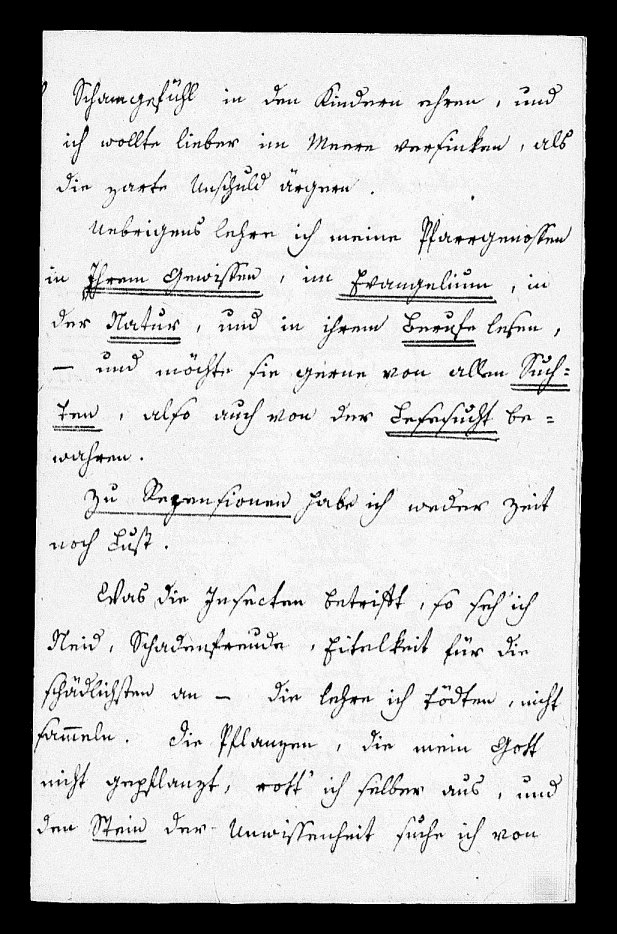 Schamgefühl in den Kindern ehren, und
ich wollte lieber im Meere versinken, als
die zarte Unschuld ärgern.
Uebrigens lehre ich meine Pfarrgenossen
in Ihrem Gewissen, im Evangelium, in
der Natur, und in ihrem Berufe lesen,
— und möchte sie gerne von allen Such=
ten, also auch von der Lesesucht be=
wahren.
Zu Rezensionen habe ich weder Zeit
noch Lust.
Was die Insecten betrifft, so seh' ich
Neid, Schadenfreude, Eitelkeit für die
schädlichsten an — die lehre ich tödten, nicht
sam̅eln. Die Pflanzen, die mein Gott
nicht gepflanzt, rott' ich selber aus, und
den Stein der Unwissenheit suche ich von